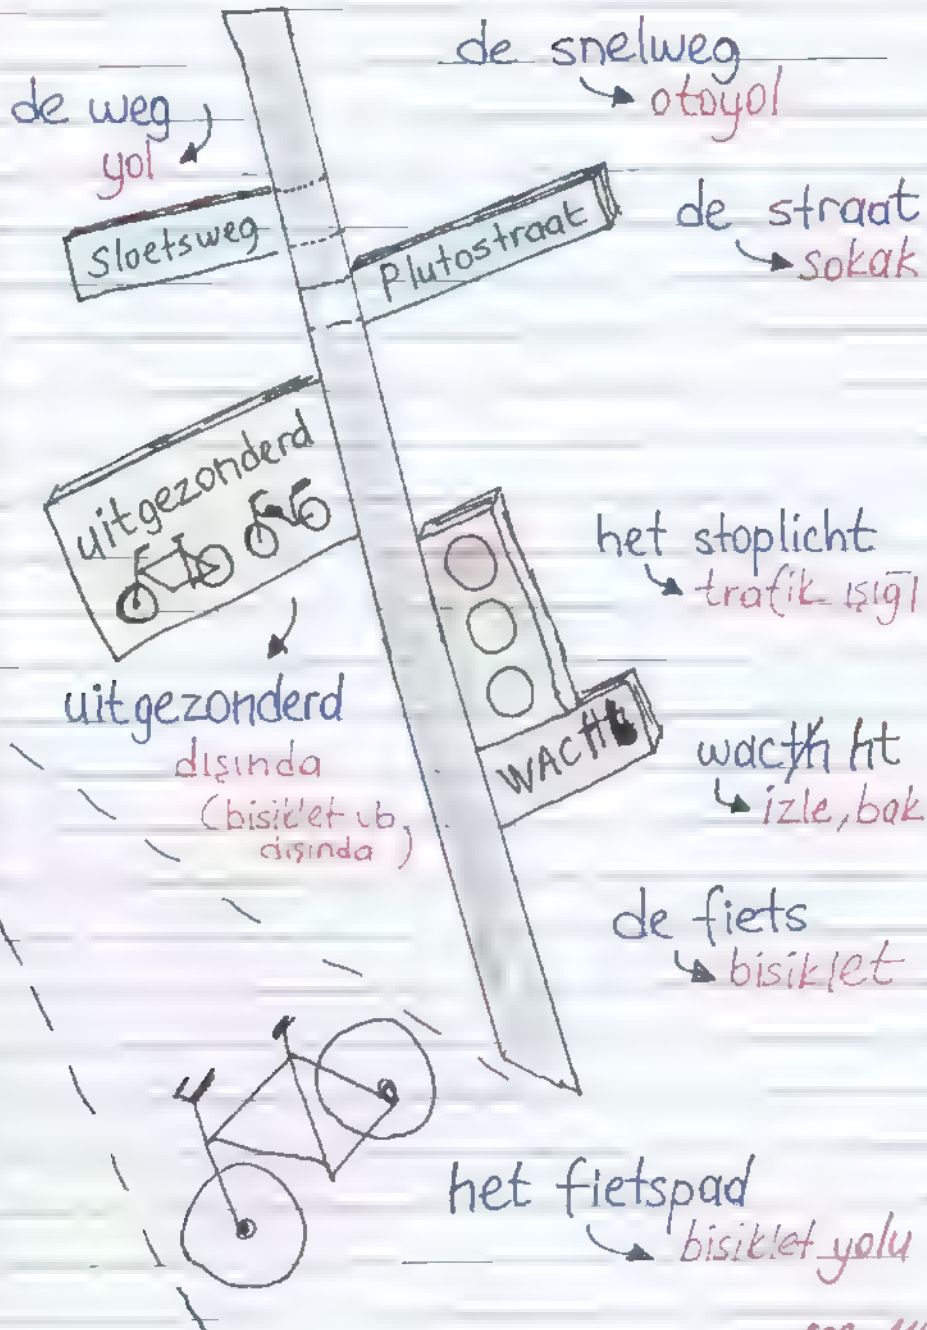 de snelweg
otoyol
de weg
yol
Sloetsweg
Plutostraat
de straat
sokak
uitgezonderd
het stoplicht
trafik ışığı
uitgezonderd
dışında
(bisiklet vb.
dışında)
WACHt
wacth ht
izle, bak
de fiets
bisiklet
het fietspad
bisiklet yolu